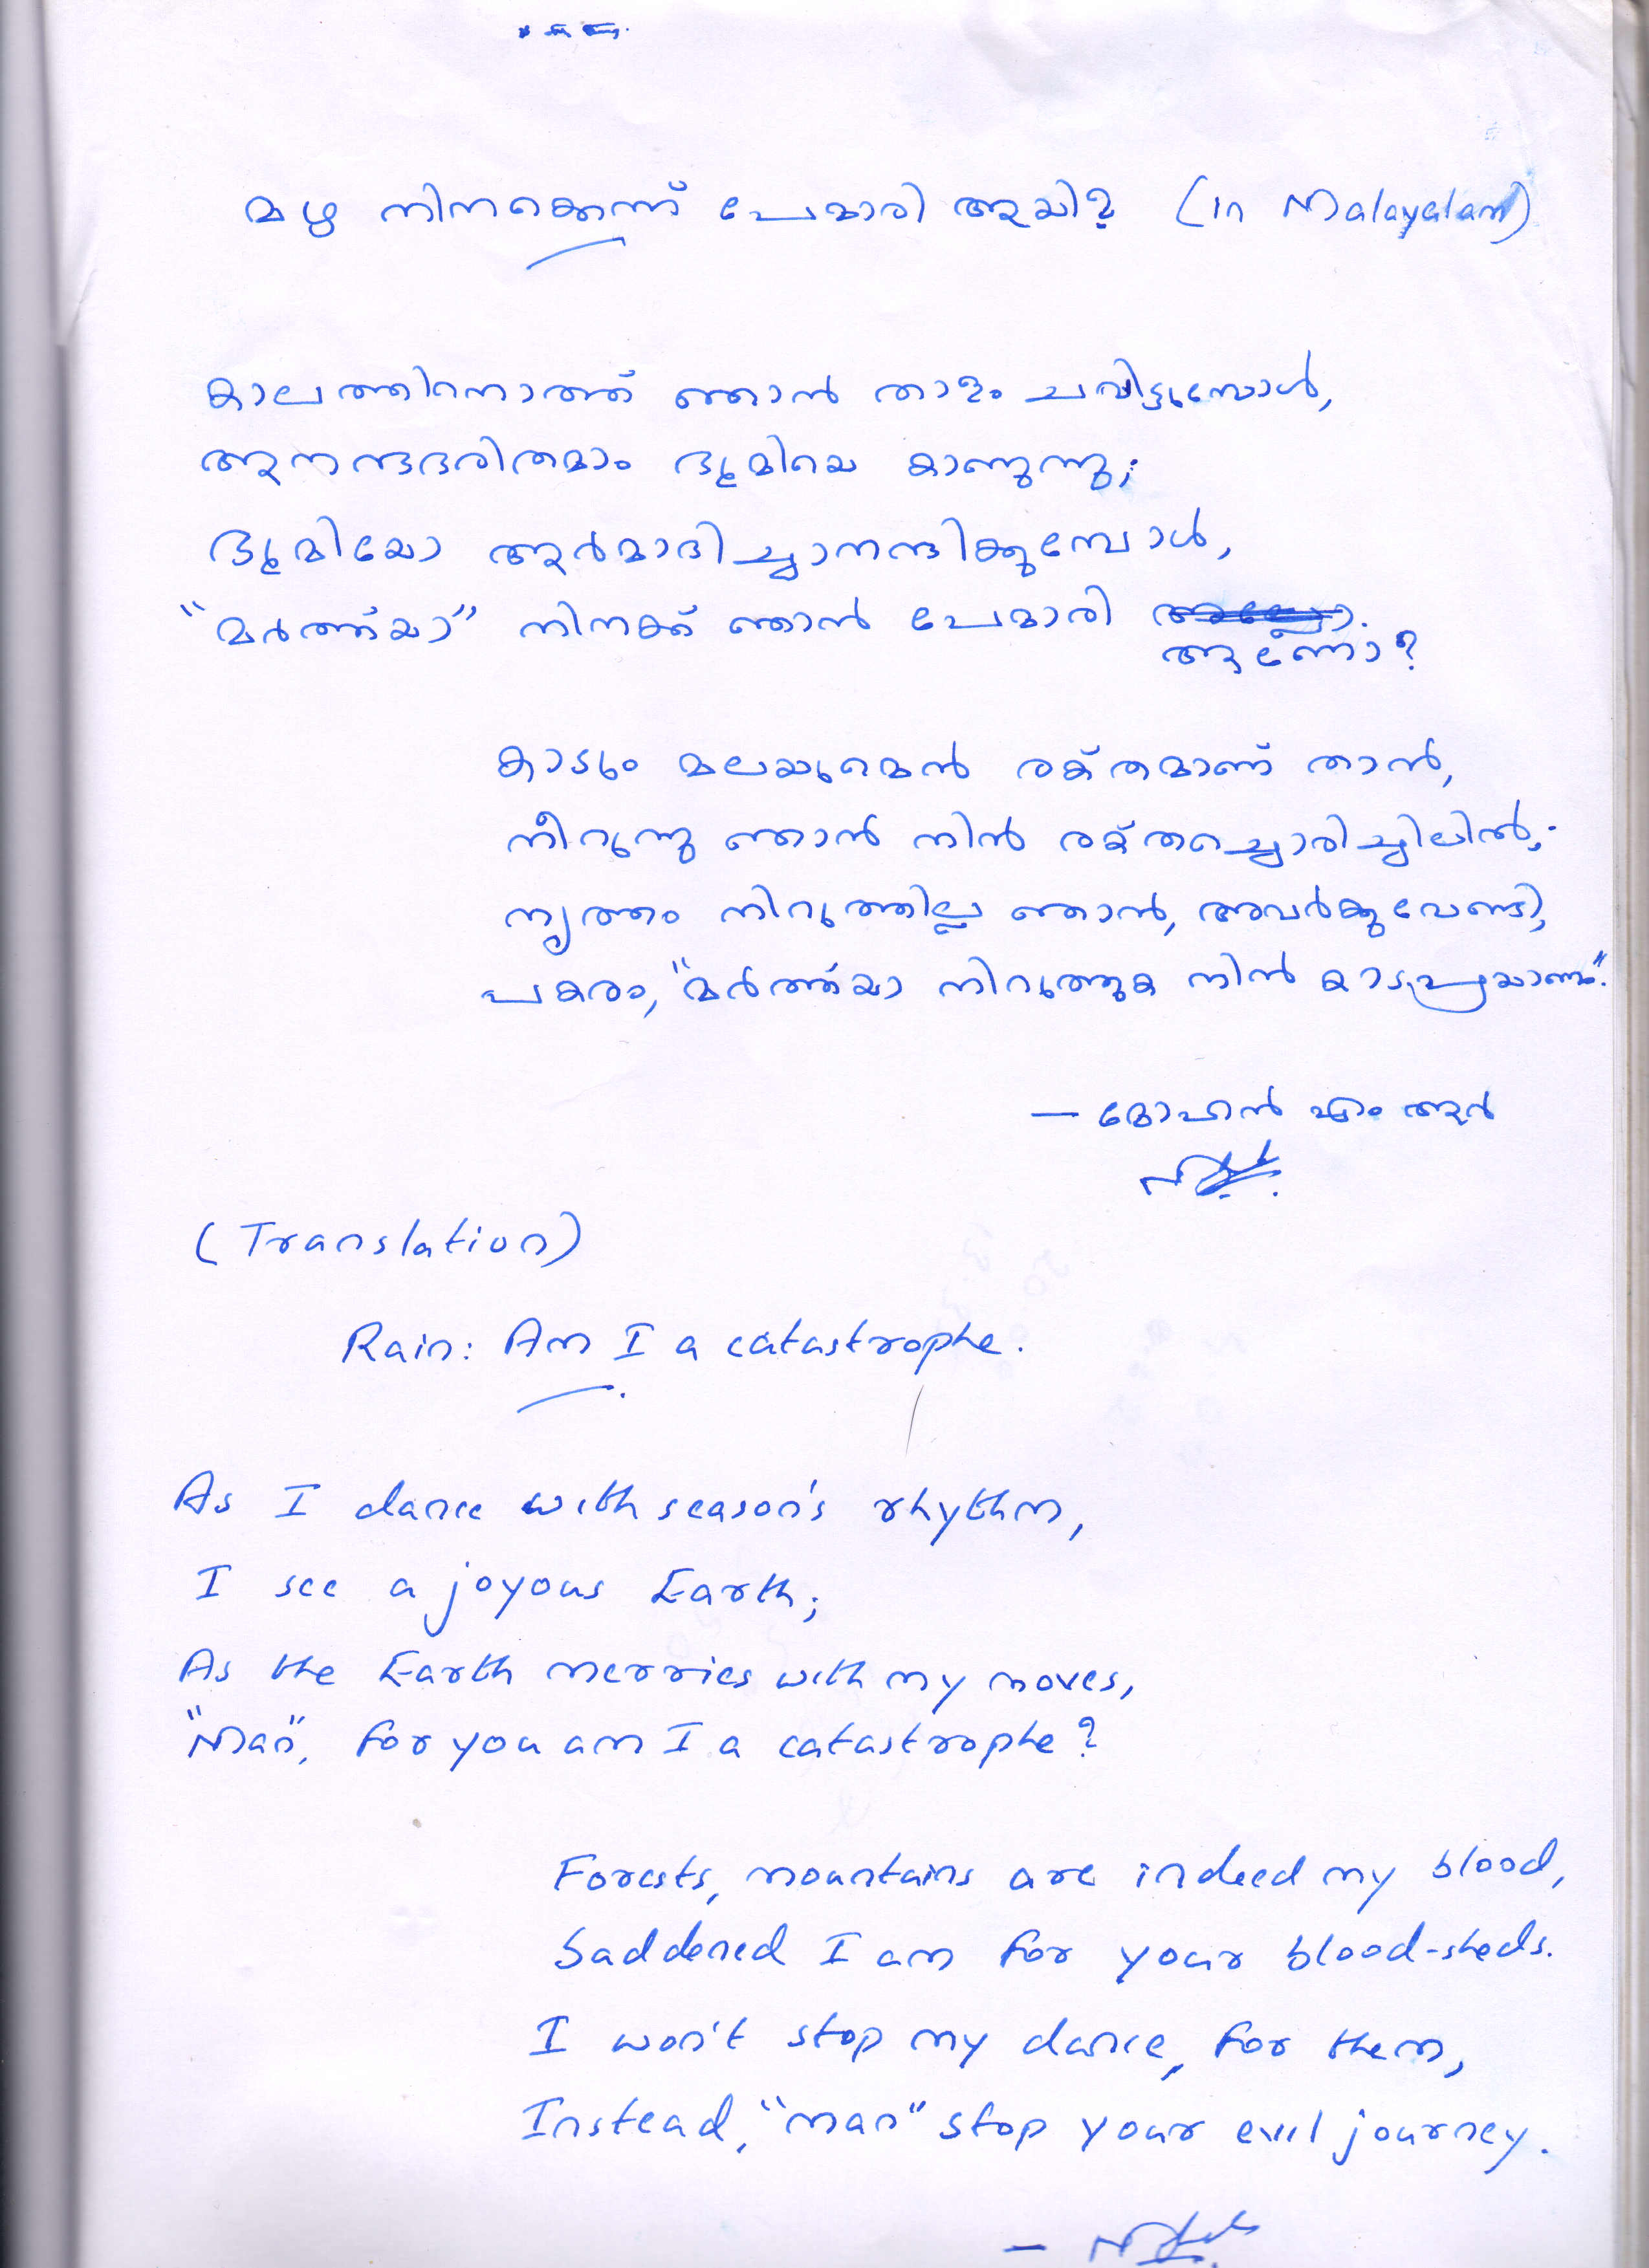 മഴ നിനക്കെന്ന് പേമാരി ആയി? (in Malayalam)
കാലത്തിനൊത്ത് ഞാൻ താളം ചവിട്ടുമ്പോൾ,
ആനന്ദഭരിതമാം ഭൂമിയെ കാണുന്നു;
ഭൂമിയോ ആർമാദിച്ചാനന്ദിക്കുമ്പോൾ,
"മർത്ത്യാ" നിനക്ക് ഞാൻ പേമാരി
ആണോ?
കാടും മലയുമെൻ രക്തമാണ് താൻ,
നീറുന്നു ഞാൻ നിൻ രക്തച്ചൊരിച്ചിലിൽ;
നൃത്തം നിറുത്തില്ല ഞാൻ, അവർക്കുവേണ്ടി,
പകരം, "മർത്ത്യാ നിറുത്തുക നിൻ കാടപ്രയാണം".
— മോഹൻ എം ആർ
(Translation)
Rain: Am I a catastrophe.
As I dance with season's rhythm,
I see a joyous Earth;
As the Earth merries with my moves,
"Man", for you am I a catastrophe?
Forests, mountains are indeed my blood,
Saddened I am for your blood-sheds.
I won't stop my dance, for them,
Instead, "man" stop your evil journey.